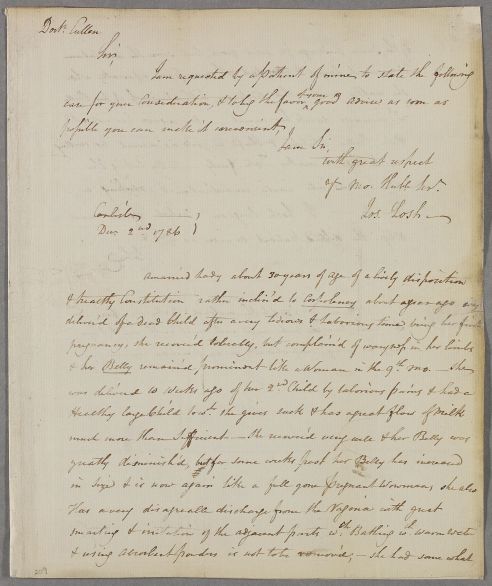 Doct.r Cullen
Sir,
I am requested by a Patient of mine to state the following
case for your Consideration, & to beg the favor of your good advice as soon as
possible you can make it convenient,
I am Sir,
with great respect
yr. mo. Huble Sert.
Jos. Losh
Carlisle
Decr. 2nd 1786
A married Lady about 30 years of age of a lively disposition
& healthy Constitution rather inclin'd to Corpulency about a year ago was
deliver'd of a dead Child after a very tedious & laborious time being her first
pregnancy; she recover'd tolerably, but complain'd of in her limbs
& her Belly remained prominent like a Woman in the 9th mo. — She
was deliver'd 10 weeks ago of her 2nd Child by laborious pains & had a
Healthy large Child to wh. she gives suck & has a great flow of Milk
much more than Sufficient — She recover'd very well & her Belly was
greatly diminish'd, but for some weeks past her Belly has increased
in size & is now again like a full gone pregnant Woman, she also
has a very disagreable discharge from the Vagina with great
smarting & irritation of the adjacent parts wch. Bathing in warm water
& using absorbent powders is not to be remov'd, — she had some what